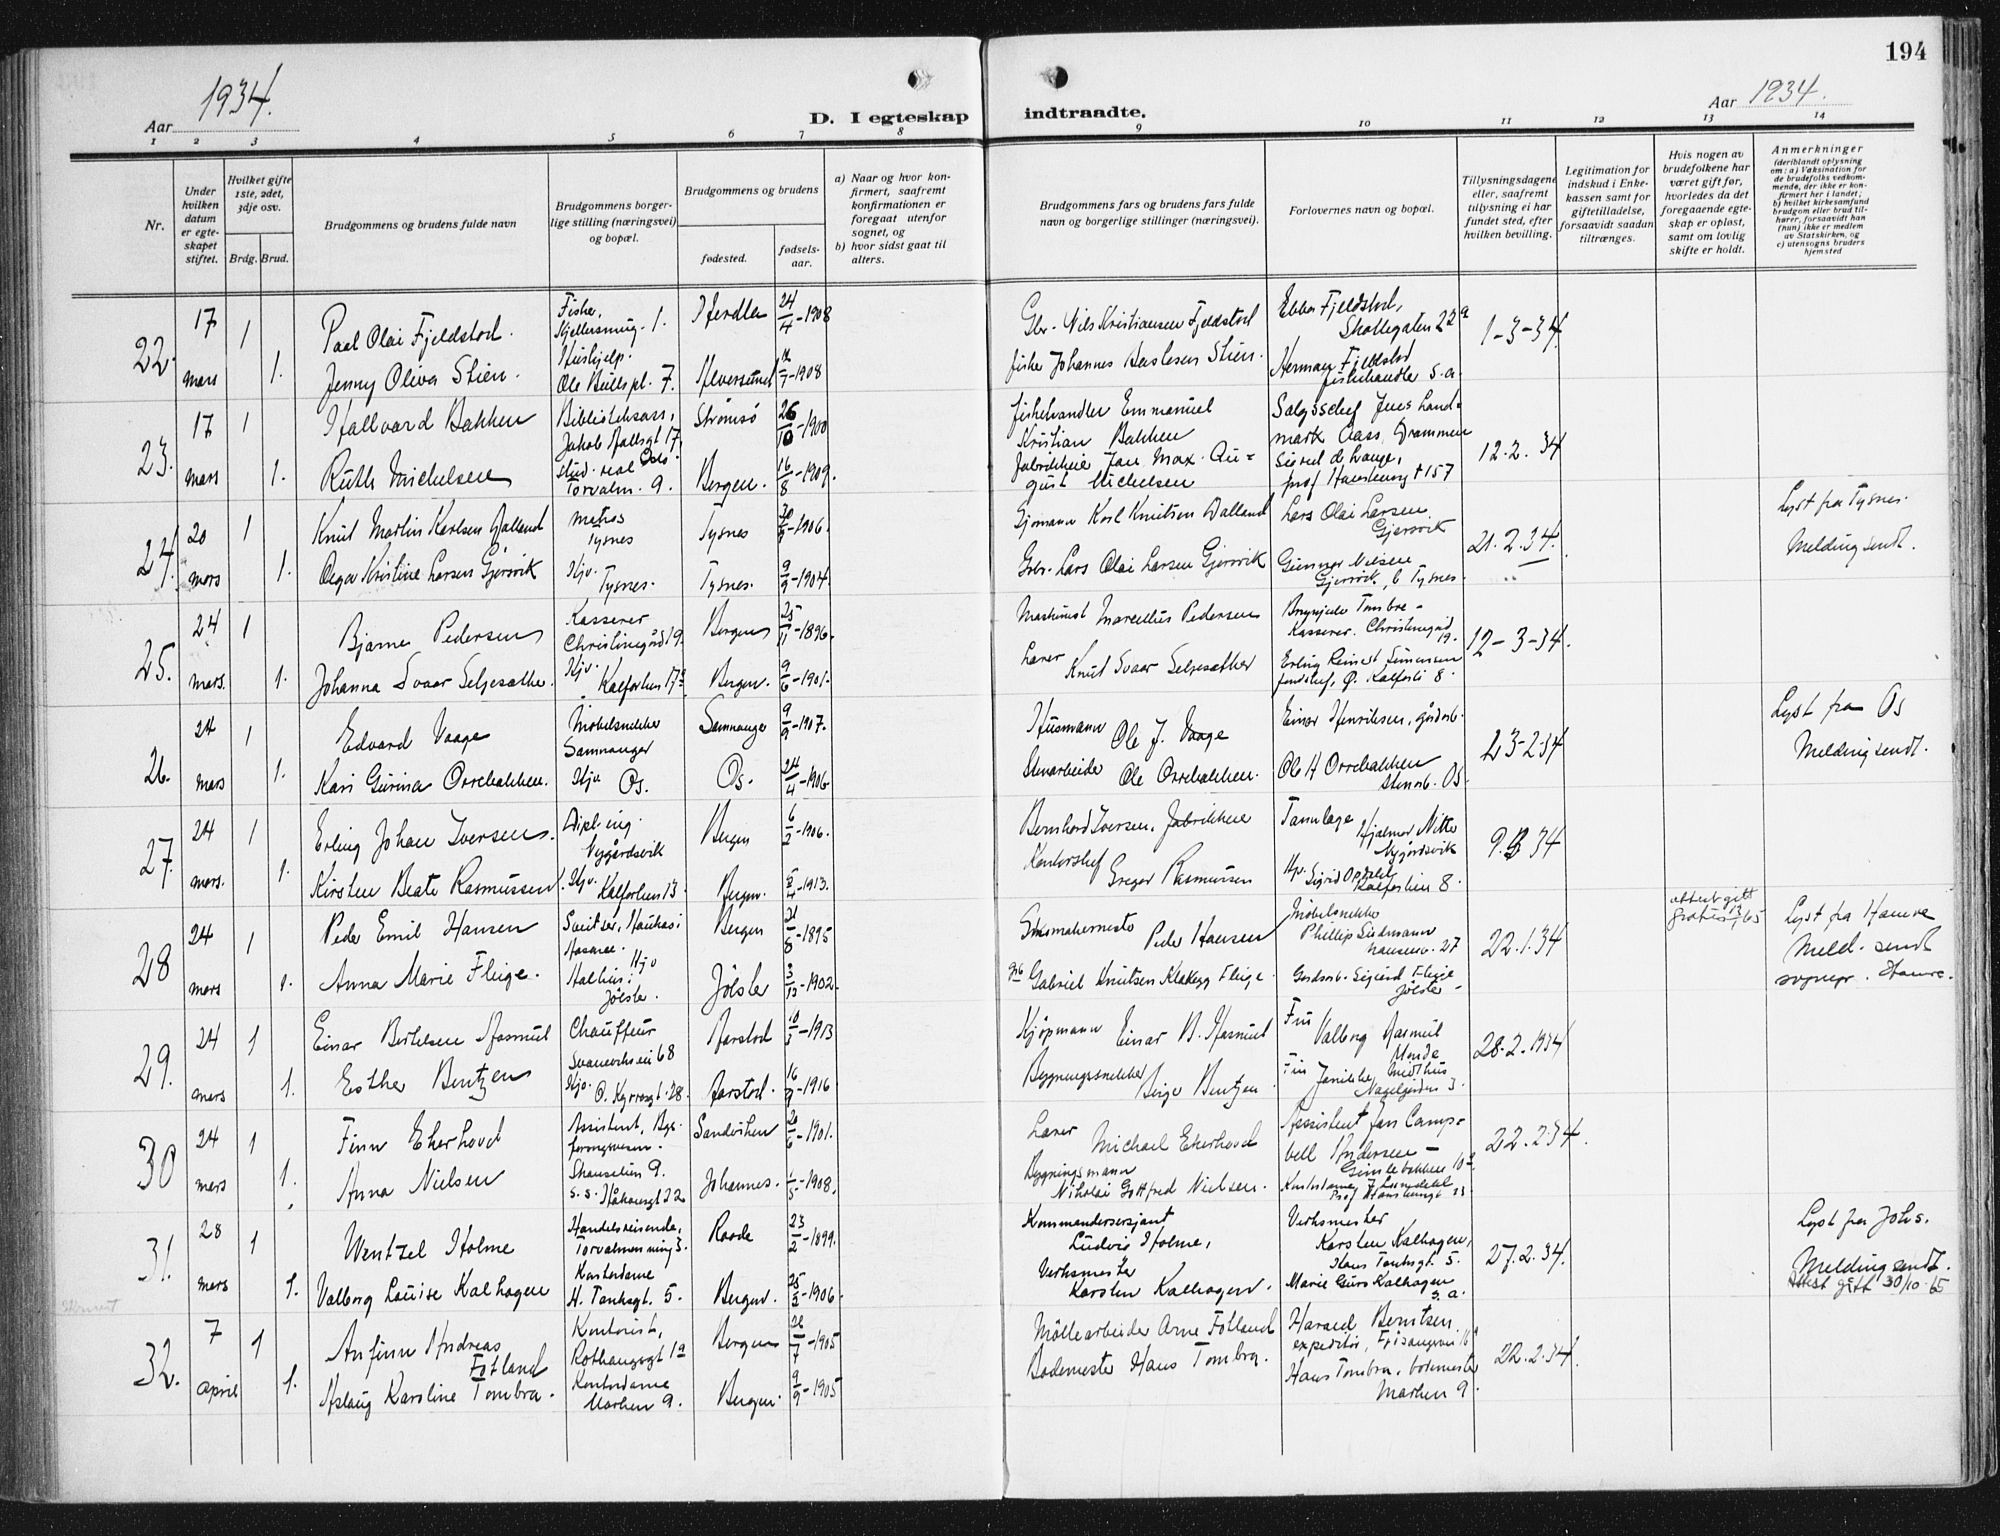 194
Aar 1934.
D. I egteskap indtraadte.
Aar 1934.
1 2 3 4 5 6 7 8 9 10 11 12 13 14
Nr.
Under hvilken datum er egteskapet stiftet.
Hvilket gifte 1ste, 2det, 3dje osv.
Brdg. Brud.
Brudgommens og brudens fulde navn
Brudgommens borgerlige stilling (næringsvei) og bopæl.
Brudgommens og brudens
fødested.
fødselsaar.
a) Naar og hvor konfirmert, saafremt konfirmationen er foregaat utenfor sognet, og
b) hvor sidst gaat til alters.
Brudgommens fars og brudens fars fulde navn og borgerlige stillinger (næringsvei).
Forlovernes navn og bopæl.
Tillysningsdagene eller, saafremt tillysning ei har fundet sted, efter hvilken bevilling.
Legitimation for indskud i Enkekassen samt for giftetilladelse, forsaavidt saadun tiltrænges.
Hvis nogen av brudefolkene har været gift før, hvorledes da det foregaaende egteskap er opløst, samt om lovlig skifte er holdt.
Anmerkninger
(deriblandt oplysning om: a) Vaksination for de brudefolks vedkommende, der ikke er konfirmert her i landet; b) hvilket kirkesamfund brudgom eller brud tilhører, forsaavidt han (hun) ikke er medlem av Statskirken, og c) utensogns bruders hjemsted
22. 17 mars 1 Paal Olai Fjeldstod. Fisker, 1. Herdla 24/4-1908
Gbr. Nils Kristiansen Fjeldstod Ebba Fjeldstod, Skottegaten 22a 1-3-34
1. Jenny Oliva Stien. Hushjelp. Ole Bulls pl. 7. Alversund 7-1908
fisker Johannes Stien. Herman Fjeldstod fiskehandler s.a.
23. 17 mars 1 Hallvard Bakken Biblioteksass, Jakob Aallsgt 17 Oslo Strömsö 26/10-1900
fiskehandler Emmanuel Kristian Bakken Salgsschef Jens Landmark Aass, Drammen 12.2.34
1. Ruth Michelsen stud. real Torvalm. 9. Bergen. 16/8-1909.
Fabrikkeier Jan Max. August Michelsen Sigurd d. Lange, prof Hansteensg 157
24. 20 mars 1 Knut Martin Karlsen Dalland matros Tysnes Tysnes 1906.
Karl Knutsen Dalland Lars Olai Larsen Gjersvik 21.2.34. Lyst fra Tysnes.
1. Olga Kristine Larsen Gjersvik Hjv. Tysnes. Tysnes. 9/9-1904.
Gbr. Lars Olai Larsen Gjersvik Gunnar Nilsen Gjersvik, Tysnes. Melding sendt.
25. 24 mars. 1 Bjarne Pedersen Kasserer Christinegård 19 Bergen 25/11-1896.
Maskinist Marcellius Pedersen Brynjulv Tombre - Kasserer. Christinegård 19. 12-3-34.
1. Johanna Svaar Seljesæther. Hjv. Kalfarlien 17 Bergen. 9/6-1901.
Lærer Knut Svaar Seljesæther Erling Reinert Simonsen Ø. Kalfarli 8.
26. 24 mars 1 Edvard Vaage Möbelsnekker Samnanger Samnanger 9/9-1907.
Husmann Ole J. Vaage Einar Henriksen, gårdarb. 23-2-34 Lyst fra Os
1. Kari Gurina Orrebakken. Hjv Os. Os. 24/4-1906
Stenarbeider Ole Orrebakken. Ole H Orrebakken Stenarb. Os. Melding sendt.
27. 24 mars. 1 Erling Johan Iversen. Dipl. ing. Nygårdsvik Bergen 6/2-1906.
Bernhard Iversen, Fabrikkeier Tannlæge Hjalmar Nitter Nygårdsvik 9.3 34
1. Kirsten Beate Rasmussen. Hjv. Kalfarlien 13. Bergen. 4-1913.
Kontorchef Greger Rasmussen Hjv. Sigrid Opdahl Kalfarlien 8.
28 24 mars 1 Peder Emil Hansen Bergen 21/8-1895
Skomakermester Peder Hansen Möbelsnekker Phillip 27 22.1.34 attest gitt gratis 65 Lyst fra
1. Anna Marie Fleige. Hjv Jölster. Jölster 3/12-1902.
Gabriel Knutsen Klakegg Fleige. Gardarb. Sigurd Fleige Jölster - Meld. sendt sognepr.
29. 24 mars 1 Einar Bertelsen Aasmul Chauffeur Svaneviksvei 68 Aarstad 10/3-1913
Kjöpmann Einar B. Aasmul Fru Valborg Aasmul Minde 28.2.1934
1. Esther Bentzen Hjv. O. Kyrresgt. 28. Aarstad. 16/9-1916
Bygningssnekker Birger Bentzen Fru Midthus Nagelgården 3.
30 24 mars 1 Finn Ekerhovd Assistent, Sandviken 20/6-1901.
Lærer Michael Ekerhovd Assistent Jan Campbell Andersen - Gimlebakken 10 22.2.34.
1. Anna Nielsen s.s. Håkonsgt 22 Johannes. 5-1908.
Bygningsmann Nikolai Gottfred Nielsen. Kontordame
31. 28 mars 1 Wentzel Holme Handelsreisende, Torvalmenning 3. Raade 23/2-1899.
Kommandersersjant Ludvig Holme, Verksmester Karsten Kalhagen, Hans Tanksgt. 5. 27.2.34. Lyst fra Johs.
1. Valborg Louise Kalhagen Kontordame H. Tanksgt. 5. Bergen. 25/2-1906.
Verksmester Karsten Kalhagen. Marie Guro Kalhagen s.a. Melding sendt.
Attest gitt 30/10-65
32. 7 april 1 Anfinn Andreas Fotland Kontorist, Rothaugsgt 1a Bergen 7-1905
Möllearbeider Arne Fotland Harald Berntsen expeditör, 22.2.34.
1. Aslaug Karoline Tombra. Kontordame Marken 9. Bergen. 9/9-1905
Bademester Hans Tombra. Hans Tombra, bademester Marken 9.